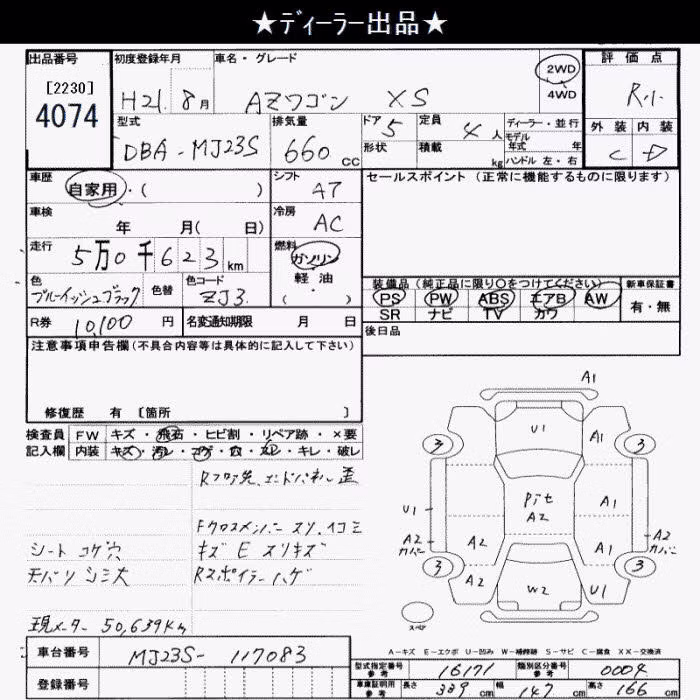 ★ディーラー出品★
出品番号
[2230]
4074
初度登録年月
H21. 8月
車名・グレード
AZワゴン XS
2WD
4WD
評価点
R.1.
外装 内装
C D
型式
DBA-MJ23S
排気量
660 cc
ドア 5
形状
定員 4人
積載 kg
ディーラー・並行
モデル
年式 年
ハンドル 左・右
車歴
自家用・( )
シフト
A7
セールスポイント (正常に機能するものに限ります)
車検
年 月( 日)
冷房
AC
走行
5万0千623km
燃料
ガソリン
軽油・
( )
色
ブルーイッシュブラック
色替
色コード
ZJ3.
装備品 (純正品に限り○をつけてください)
PS PW ABS エアB AW
SR ナビ TV カワ
新車保証書
有・無
R券
10,100 円
名変通知期限 月 日
後日品
注意事項申告欄 (不具合内容等は具体的に記入して下さい)
修復歴 有 〔箇所 〕
検査員
記入欄
FW キズ・飛石・ヒビ割・リペア跡・×要
内装 キズ・汚レ・コゲ・穴・スレ・キレ・破レ
Rフロア先、エンドパネル 歪
Fクロスメンバー スリ、イコミ
シート コゲ穴
キズ E スリキズ
天バリ シミ大
Rスポイラーハゲ
現メーター 50,639km
A1
U1
A1
3
3
Pit
A2
A1
U1
A2
カバー
A2
A1
A2
カバー
3
3
A2
W2
U1
スペア
A-キズ E-エクボ U-凹み W-補修跡 S-サビ C-腐食 XX-交換済
車台番号
MJ23S-117083
登録番号
型式指定番号
参考
16171
類別区分番号
参考
0004
車庫証明用
参考
長さ 339 cm
幅 147 cm
高さ 166 cm